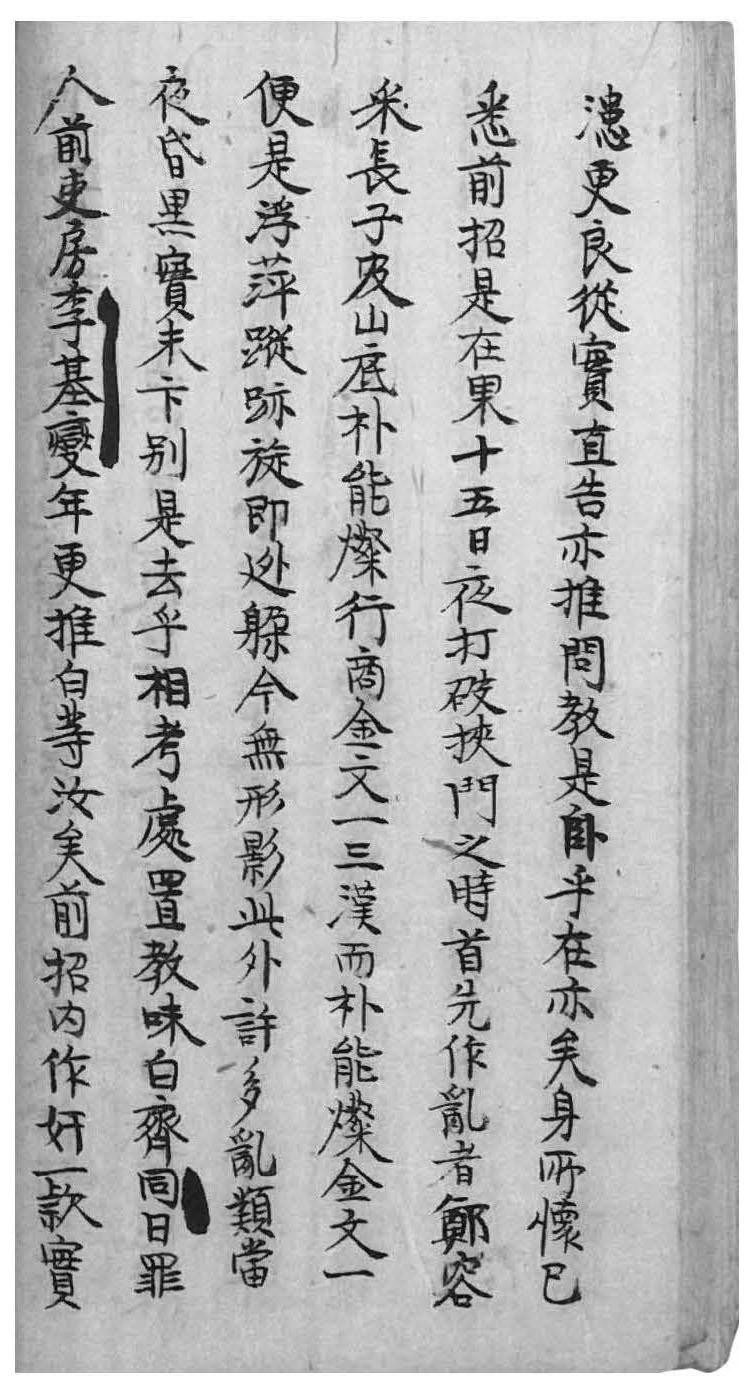 漶更良從實直告亦推問教是臥乎在亦矣身所懷已
悉前招是在果十五日夜打破挾門之時首先作亂者鄭容
采長子皮山底朴能燦行商金文一三漢而朴能燦金文一
便是浮萍蹤跡旋即迯躲今無形影此外許多亂類當
夜昏黑實未卞別是去乎相考處置教味白齊同日罪
人前吏房李基變年更推白等汝矣前招內作奸一款實